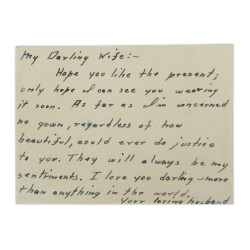 My Darling Wife:-
Hope you like the present;
only hope I can see you wearing
it soon. As far as I'm concerned
no gown, regardless of how
beautiful, could ever do justice
to you. They will always be my
sentiments. I love you darling-more
than anything in the world.
Your loving husband